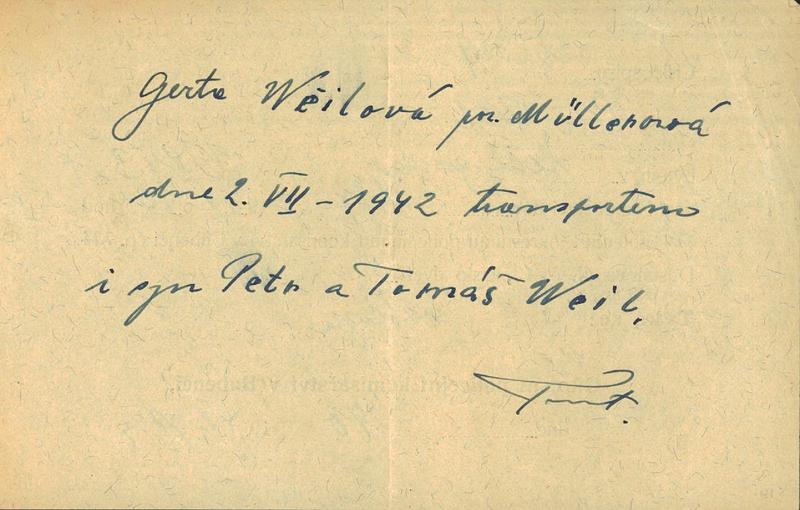 Gerta Weilová roz. Müllerová
dne 2. VII - 1942 transportem
i syn Petr a Tomáš Weil.